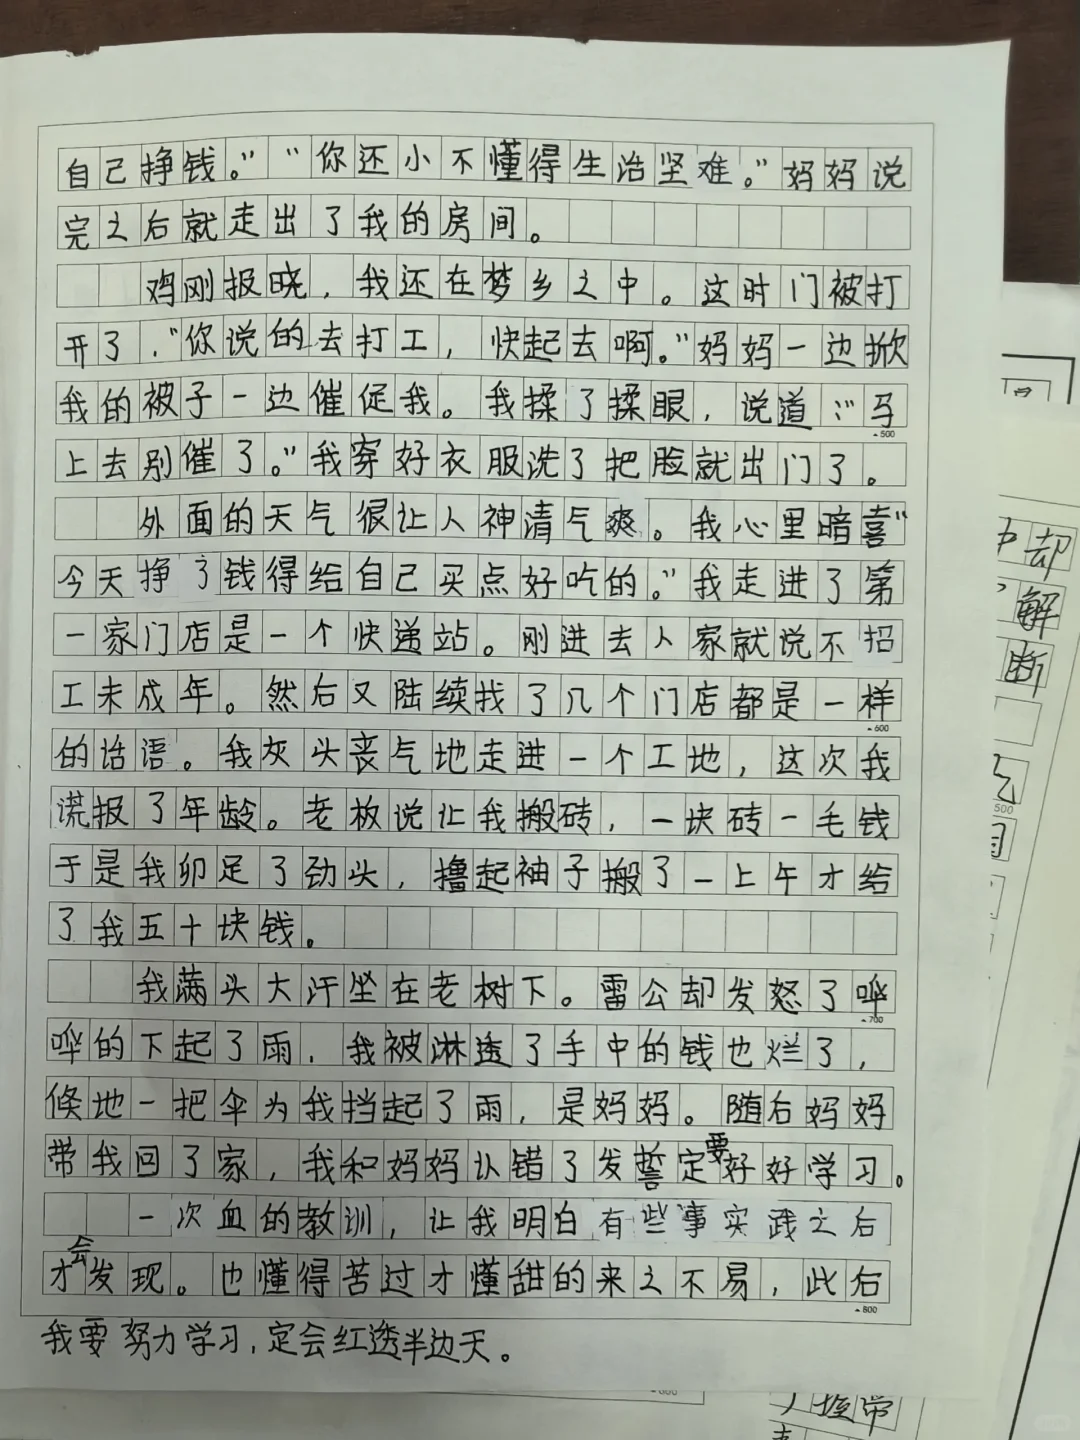 自己挣钱。”“你还小不懂得生活坚难。”妈妈说
完之后就走出了我的房间。
鸡刚报晓，我还在梦乡之中。这时门被打
开了，“你说的去打工，快起去啊。”妈妈一边掀
我的被子一边催促我。我揉了揉眼，说道：“马
500
上去别催了。”我穿好衣服洗了把脸就出门了。
外面的天气很让人神清气爽。我心里暗喜“
今天挣了钱得给自己买点好吃的。”我走进了第
一家门店是一个快递站。刚进去人家就说不招
工未成年。然后又陆续找了几个门店都是一样
600
的话语。我灰头丧气地走进一个工地，这次我
谎报了年龄。老板说让我搬砖，一块砖一毛钱
于是我卯足了劲头，撸起袖子搬了一上午才给
了我五十块钱。
我满头大汗坐在老树下。雷公却发怒了哗
700
哗的下起了雨，我被淋透了手中的钱也烂了，
倏地一把伞为我挡起了雨，是妈妈。随后妈妈
带我回了家，我和妈妈认错了发誓定要好好学习。
一次血的教训，让我明白有些事实践之后
才会发现。也懂得苦过才懂甜的来之不易，此后
800
我要努力学习，定会红透半边天。
却
解
断
500
握常